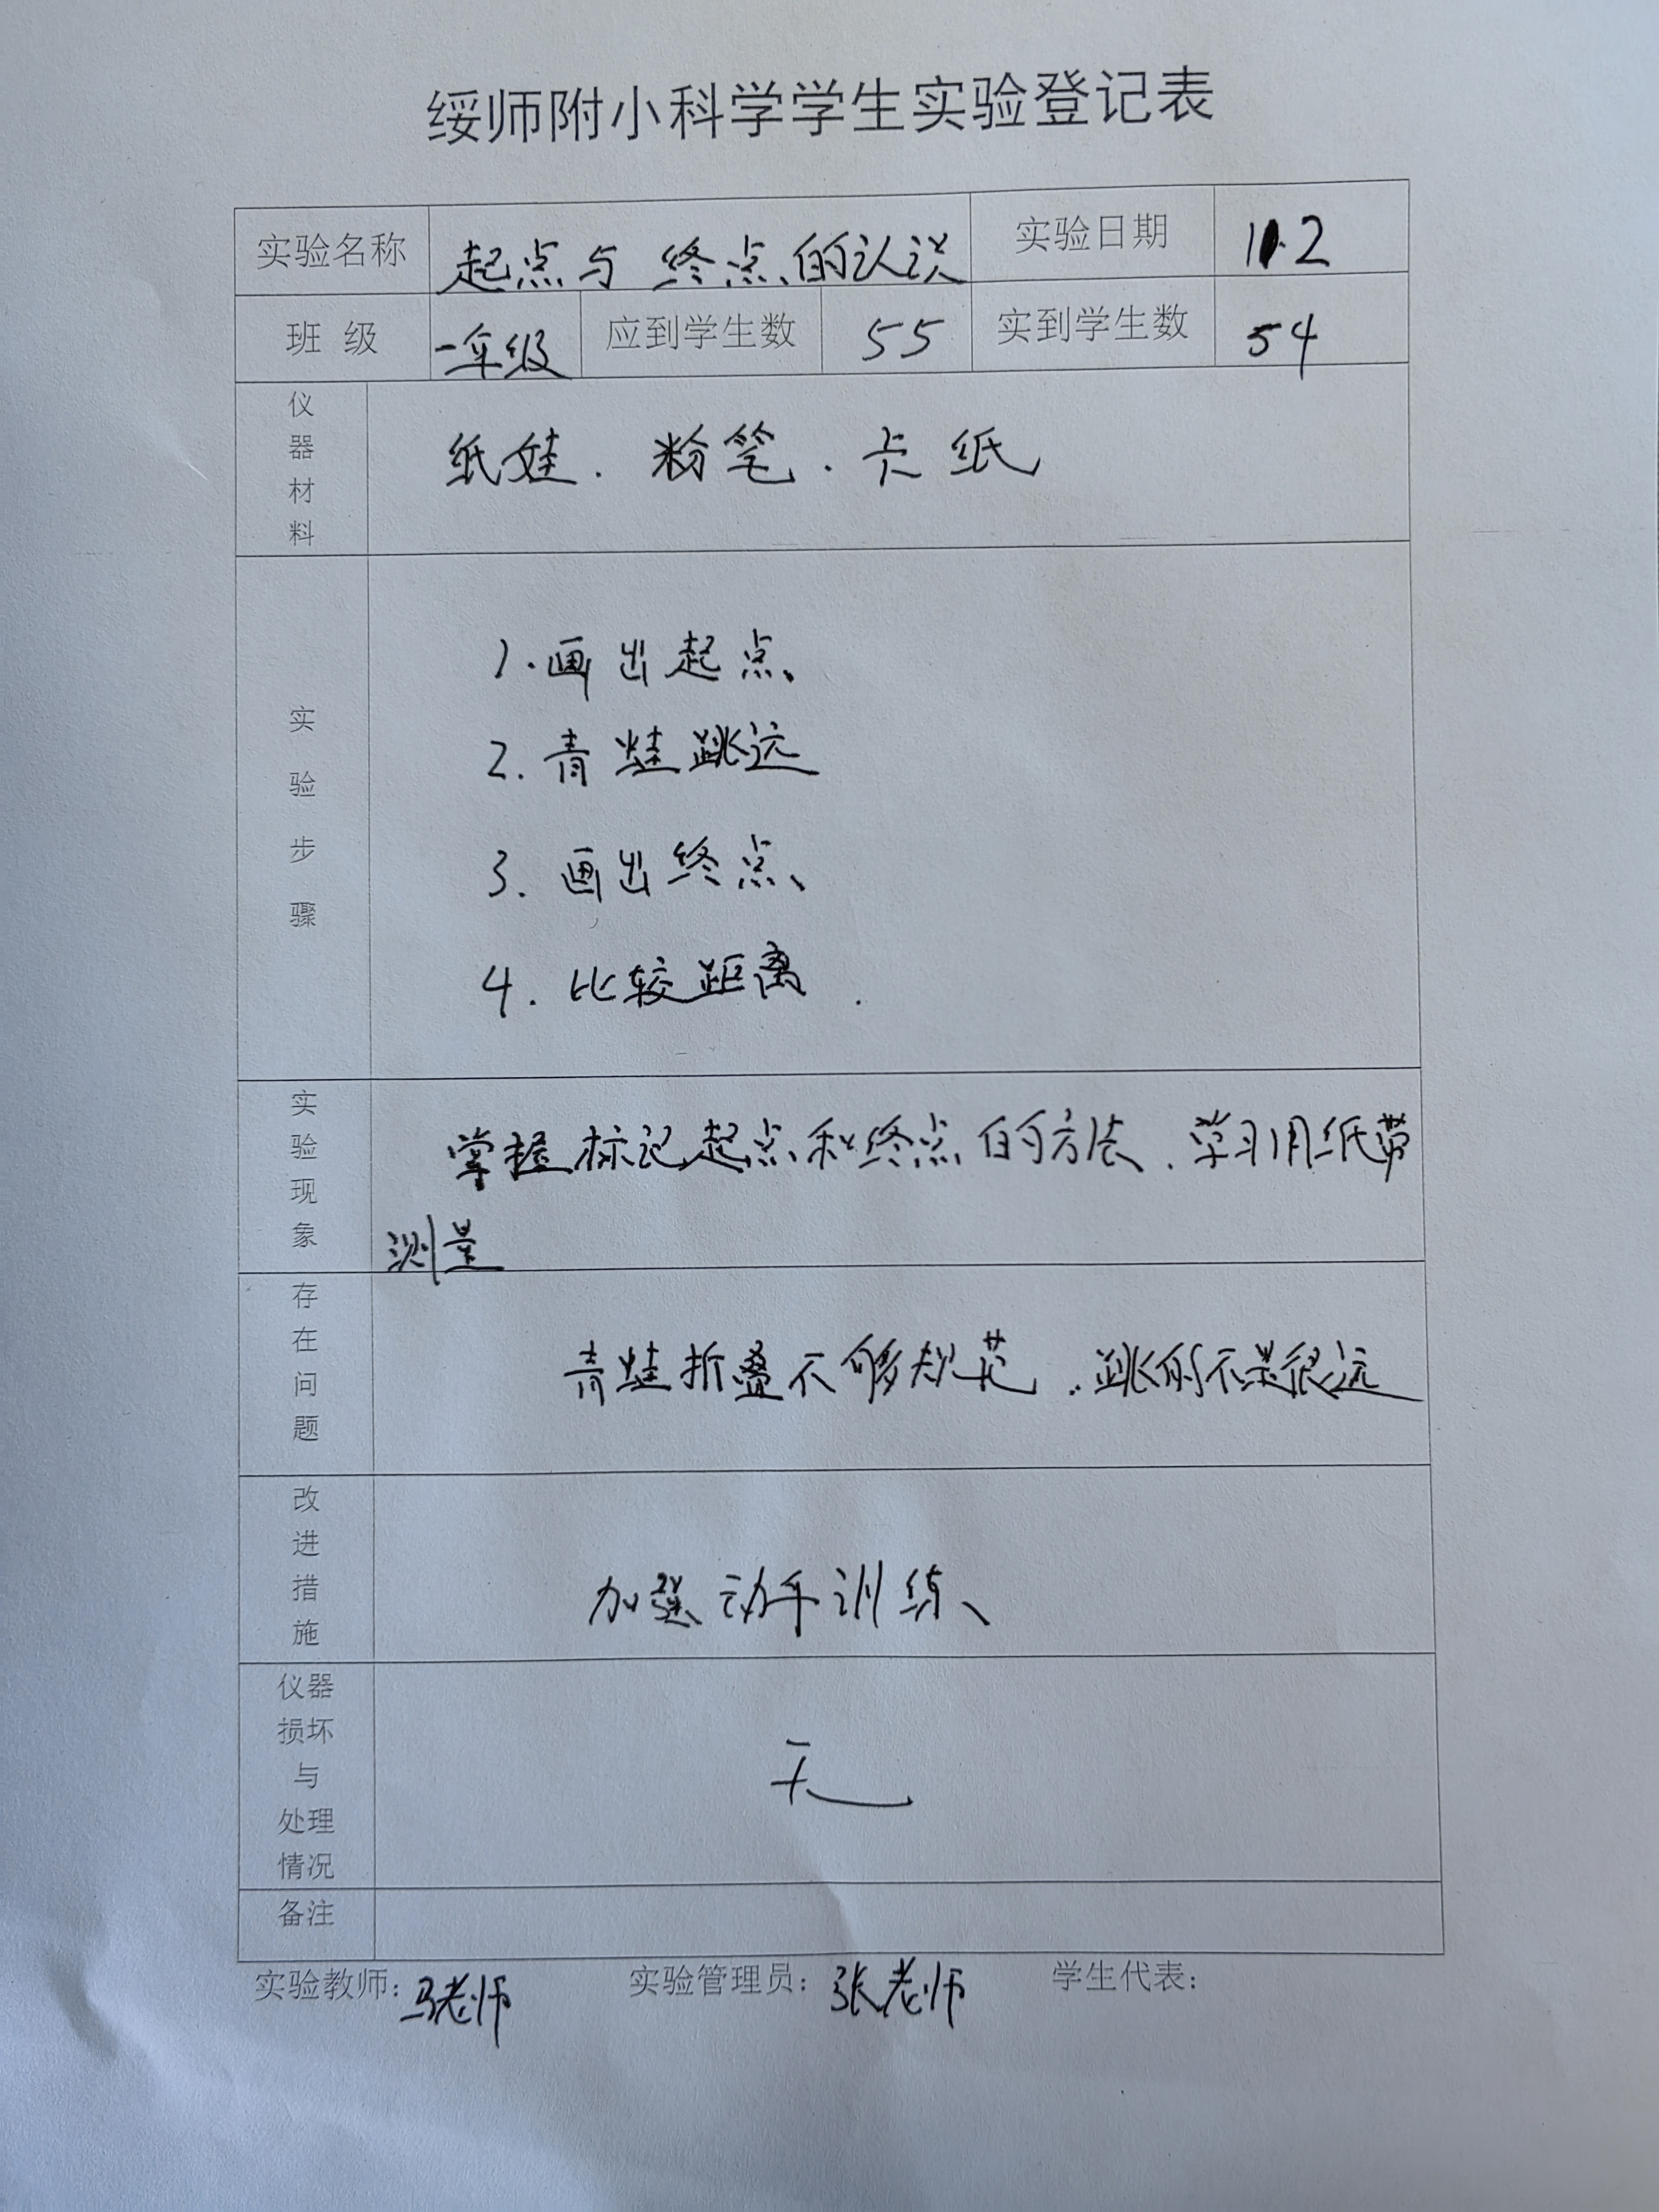 绥师附小科学学生实验登记表
实验名称 起点与终点的认识 实验日期 11.2
班 级 一年级 应到学生数 55 实到学生数 54
仪器材料 纸娃.粉笔.卡纸
实验步骤
1.画出起点
2.青蛙跳远
3.画出终点
4.比较距离.
实验现象 掌握标记起点和终点的方法.学习用纸带
测量
存在问题 青蛙折叠不够规范.跳的不是很远
改进措施 加强动手训练
仪器损坏与处理情况 无
备注
实验教师：马老师 实验管理员：张老师 学生代表：